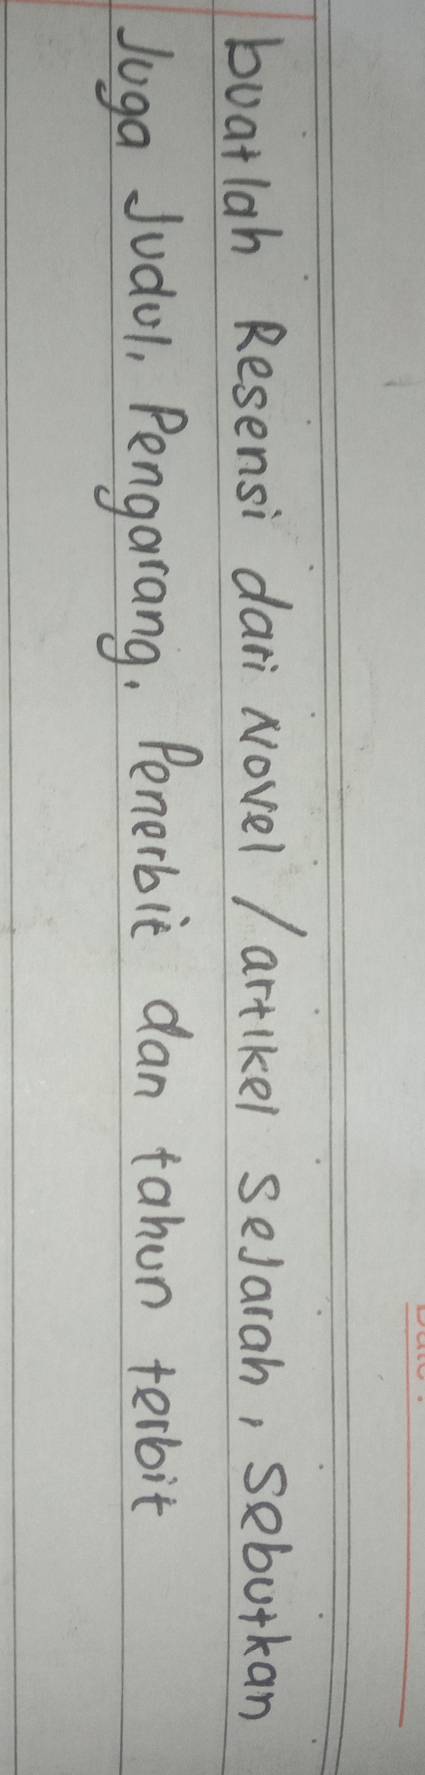 buatlah Resensi dari Novel / artikel Sejarah, Sebutkan
Juga Judul, Pengarang, Penerbit dan tahun terbit